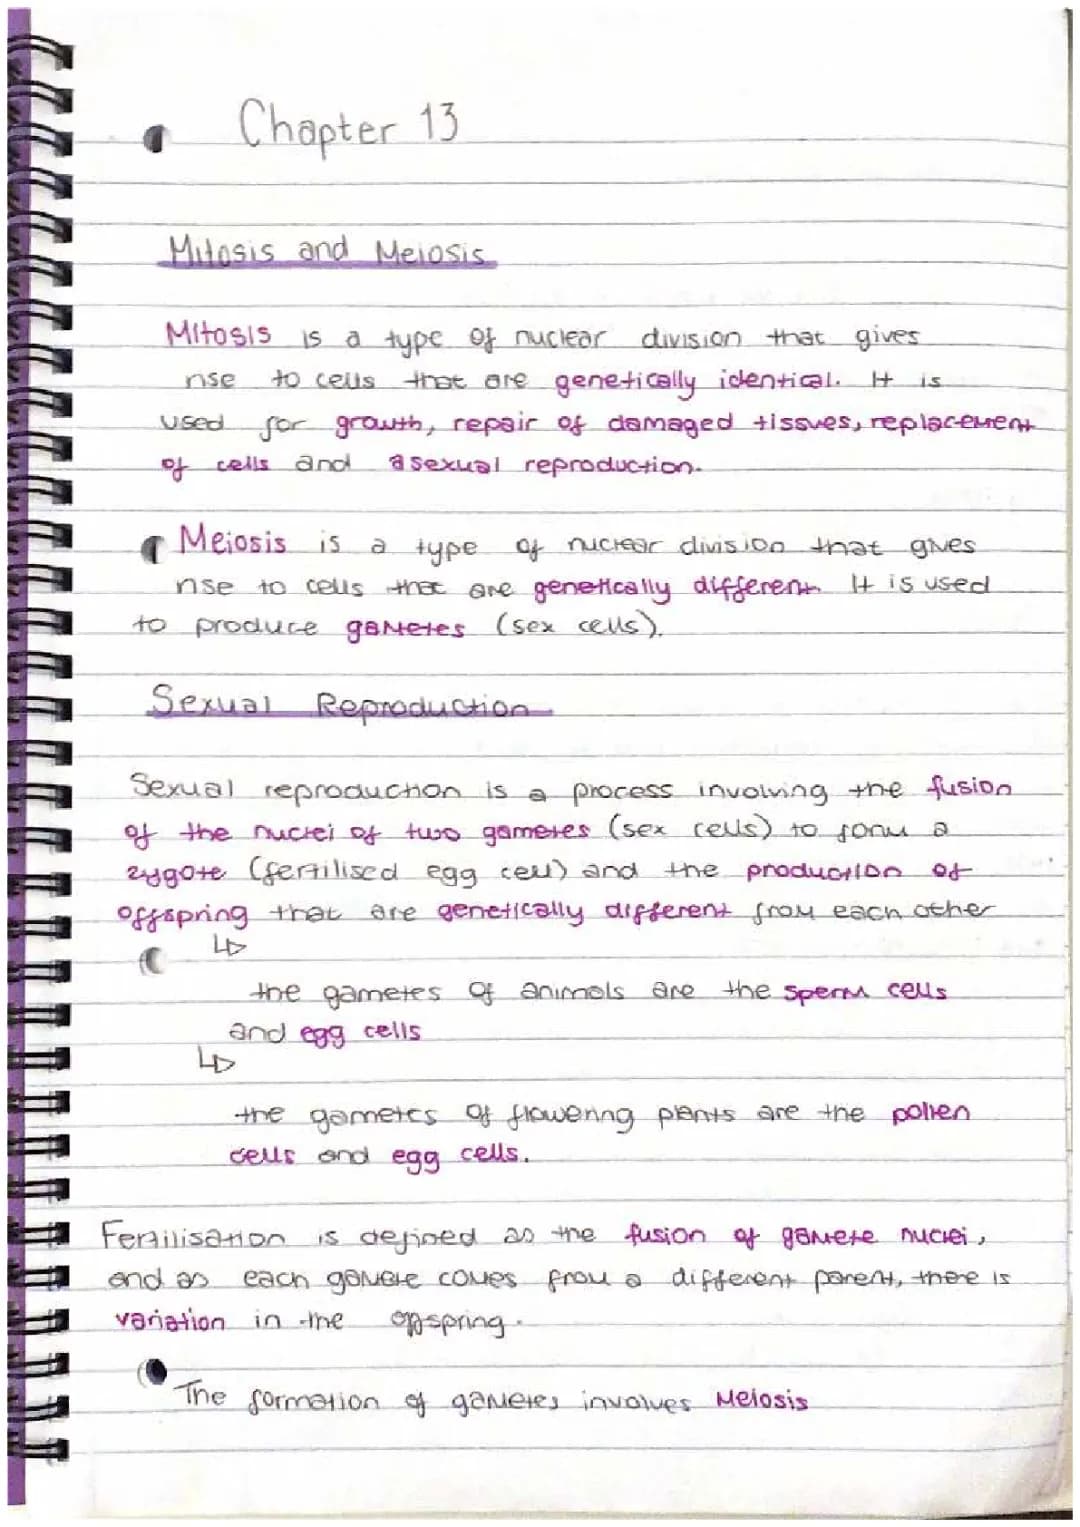 Chapter 13
Mitosis and Meiosis
Mitosis is a type of nuclear division that gives
rise to cells that are genetically identical. It is
used for growth, repair of damaged tissues, replacement
of cells and asexual reproduction.
Meiosis is a type of nuclear division that gives
rise to cells that are genetically different. It is used
to produce gametes (sex cells).
Sexual Reproduction
Sexual reproduction is a process involving the fusion
of the nuclei of two gametes (sex cells) to form a
zygote (fertilised egg cell) and the production of
offspring that are genetically different from each other
the gametes of animals are the sperm cells
and egg cells
the gametes of flowering plants are the pollen
cells and egg cells.
Fertilisation is defined as the fusion of gamete nuclei,
and as each gamete comes from a different parent, there is
variation in the offspring.
The formation of gametes involves Meiosis